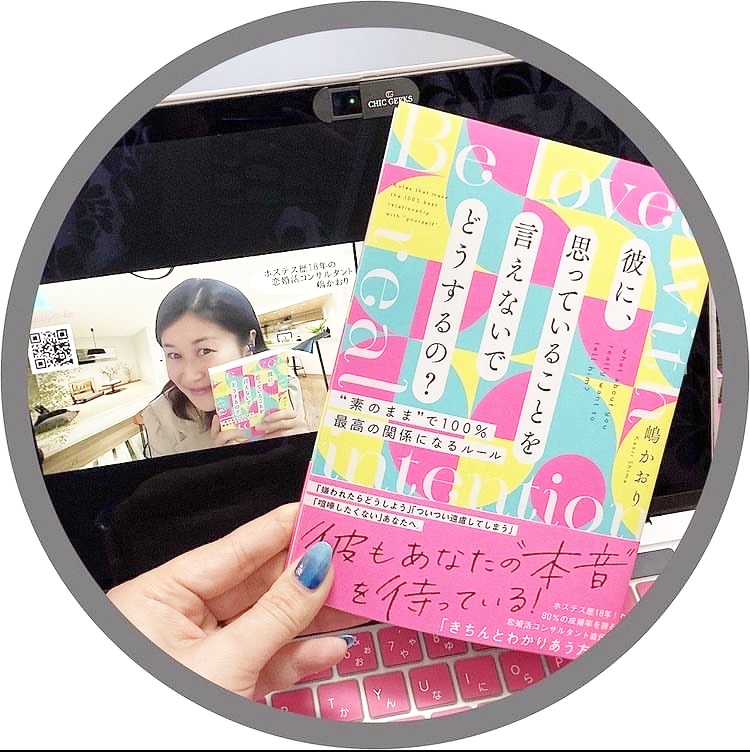 CHIC GEEKS
ホステス歴18年の
恋婚活コンサルタント
嶋かおり
Be loved
with
real
intention
Rules that make
the 100% best
relationship
with "yourself"
彼に、
思っていることを
言えないで
どうするの？
what about you
really want to
tell him?
嶋かおり
Kaori Shima
“素のまま”で100%
最高の関係になるルール
「嫌われたらどうしよう」「ついつい遠慮してしまう」
「喧嘩したくない」あなたへ
彼もあなたの“本音”
を待っている！
ホステス歴18年！
80%の成婚率を誇る
恋婚活コンサルタント直伝
「きちんとわかりあう方
& 7 8
お や ゆ
T か
Y ん
U な
I に
O ら
P